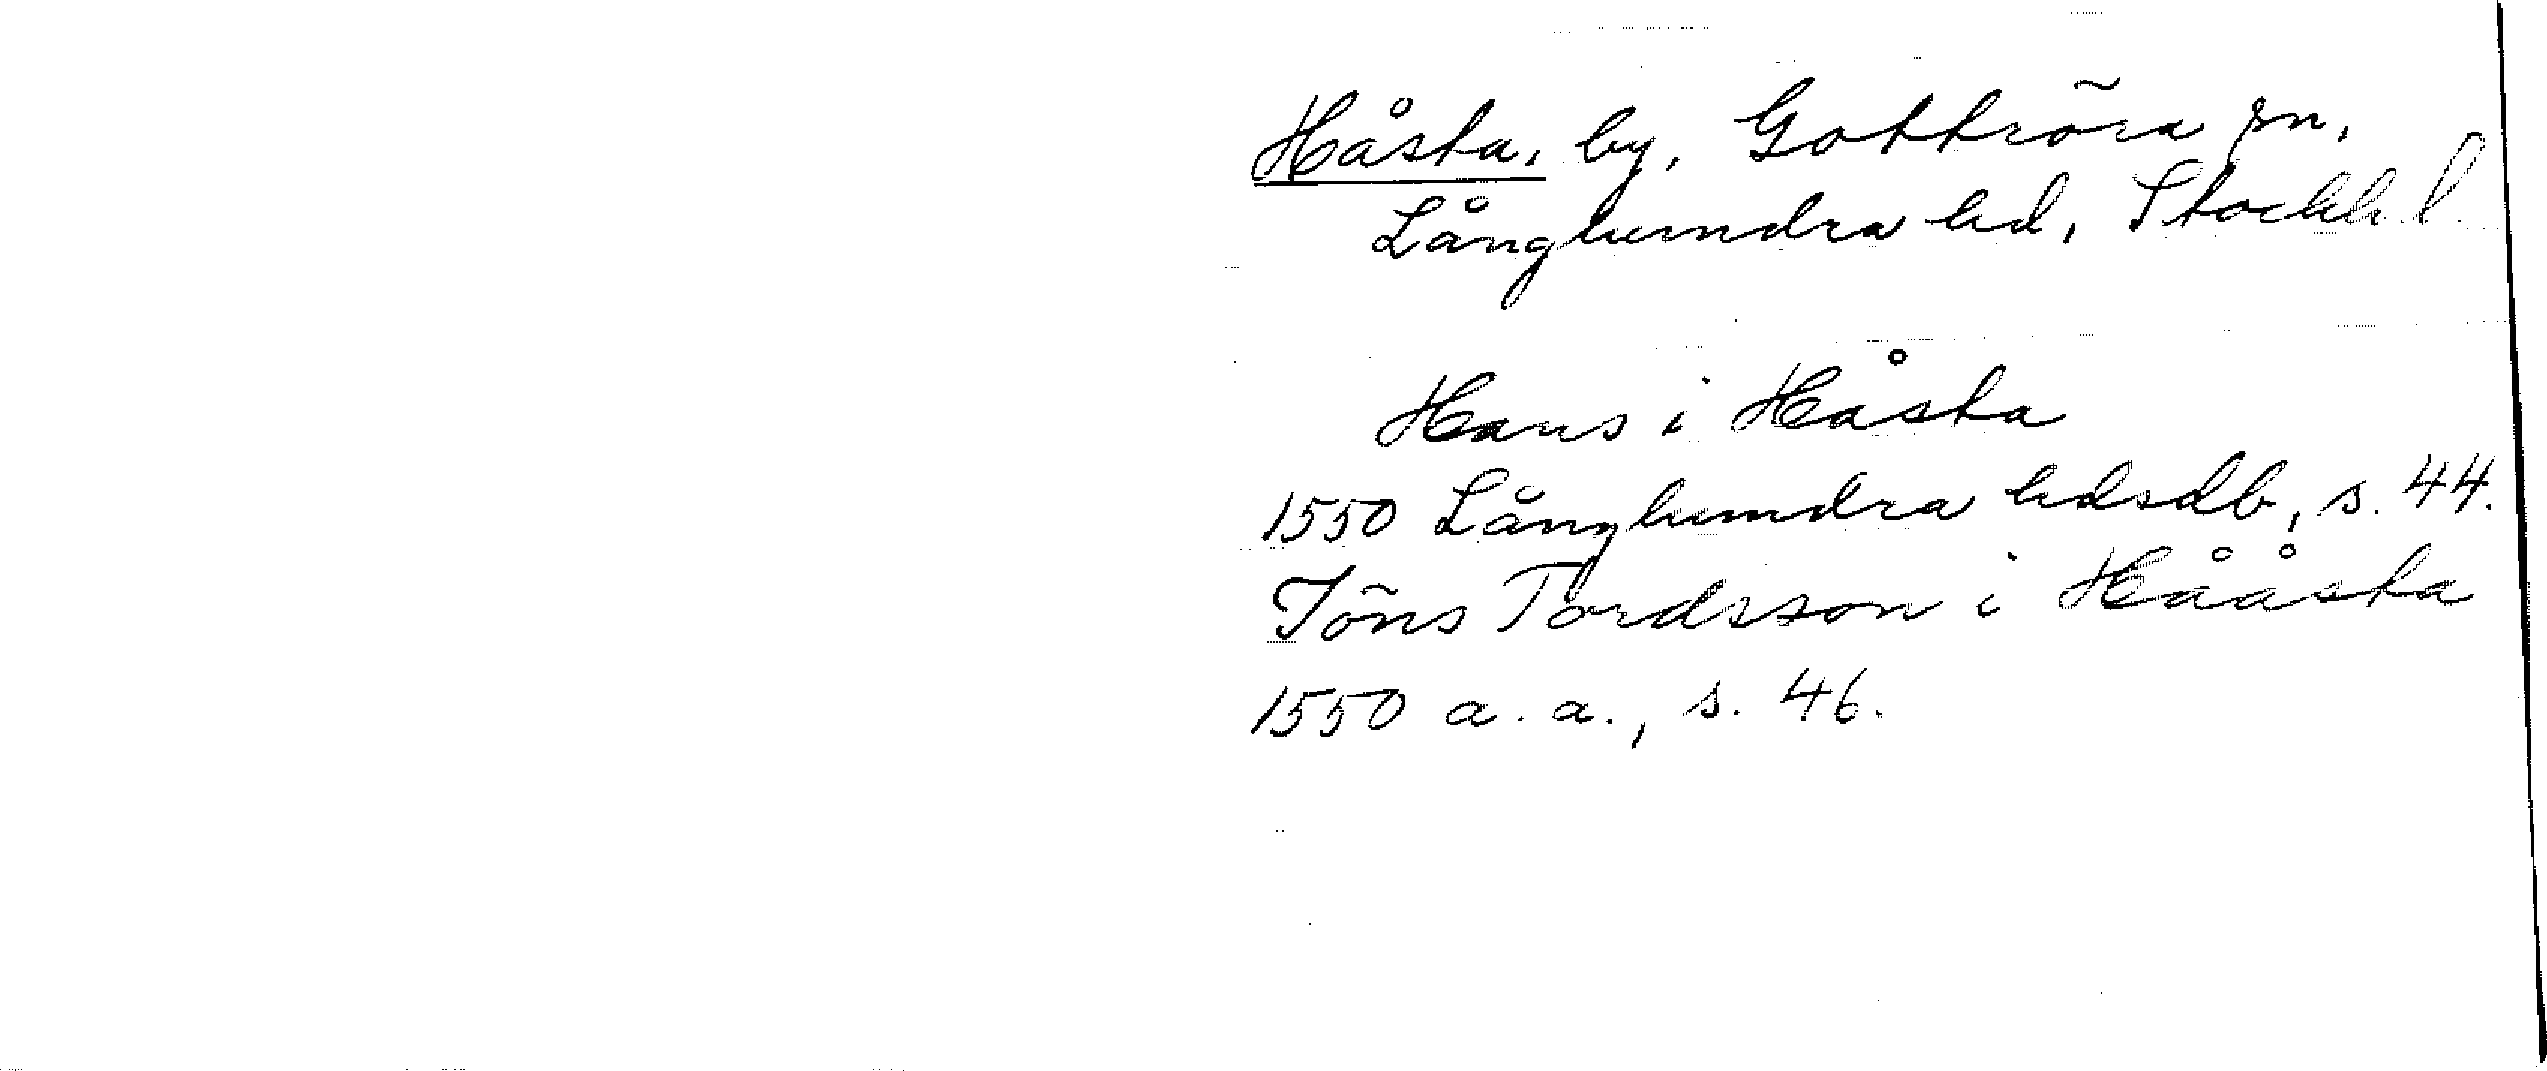 Håsta, by, Gottröra sn,
Långhundra hd, Stockh. l.
Hans i Håsta
1550 Långhundra hdsdb, s. 44.
Jöns Tordsson i Hååsta
1550 a. a., s. 46.